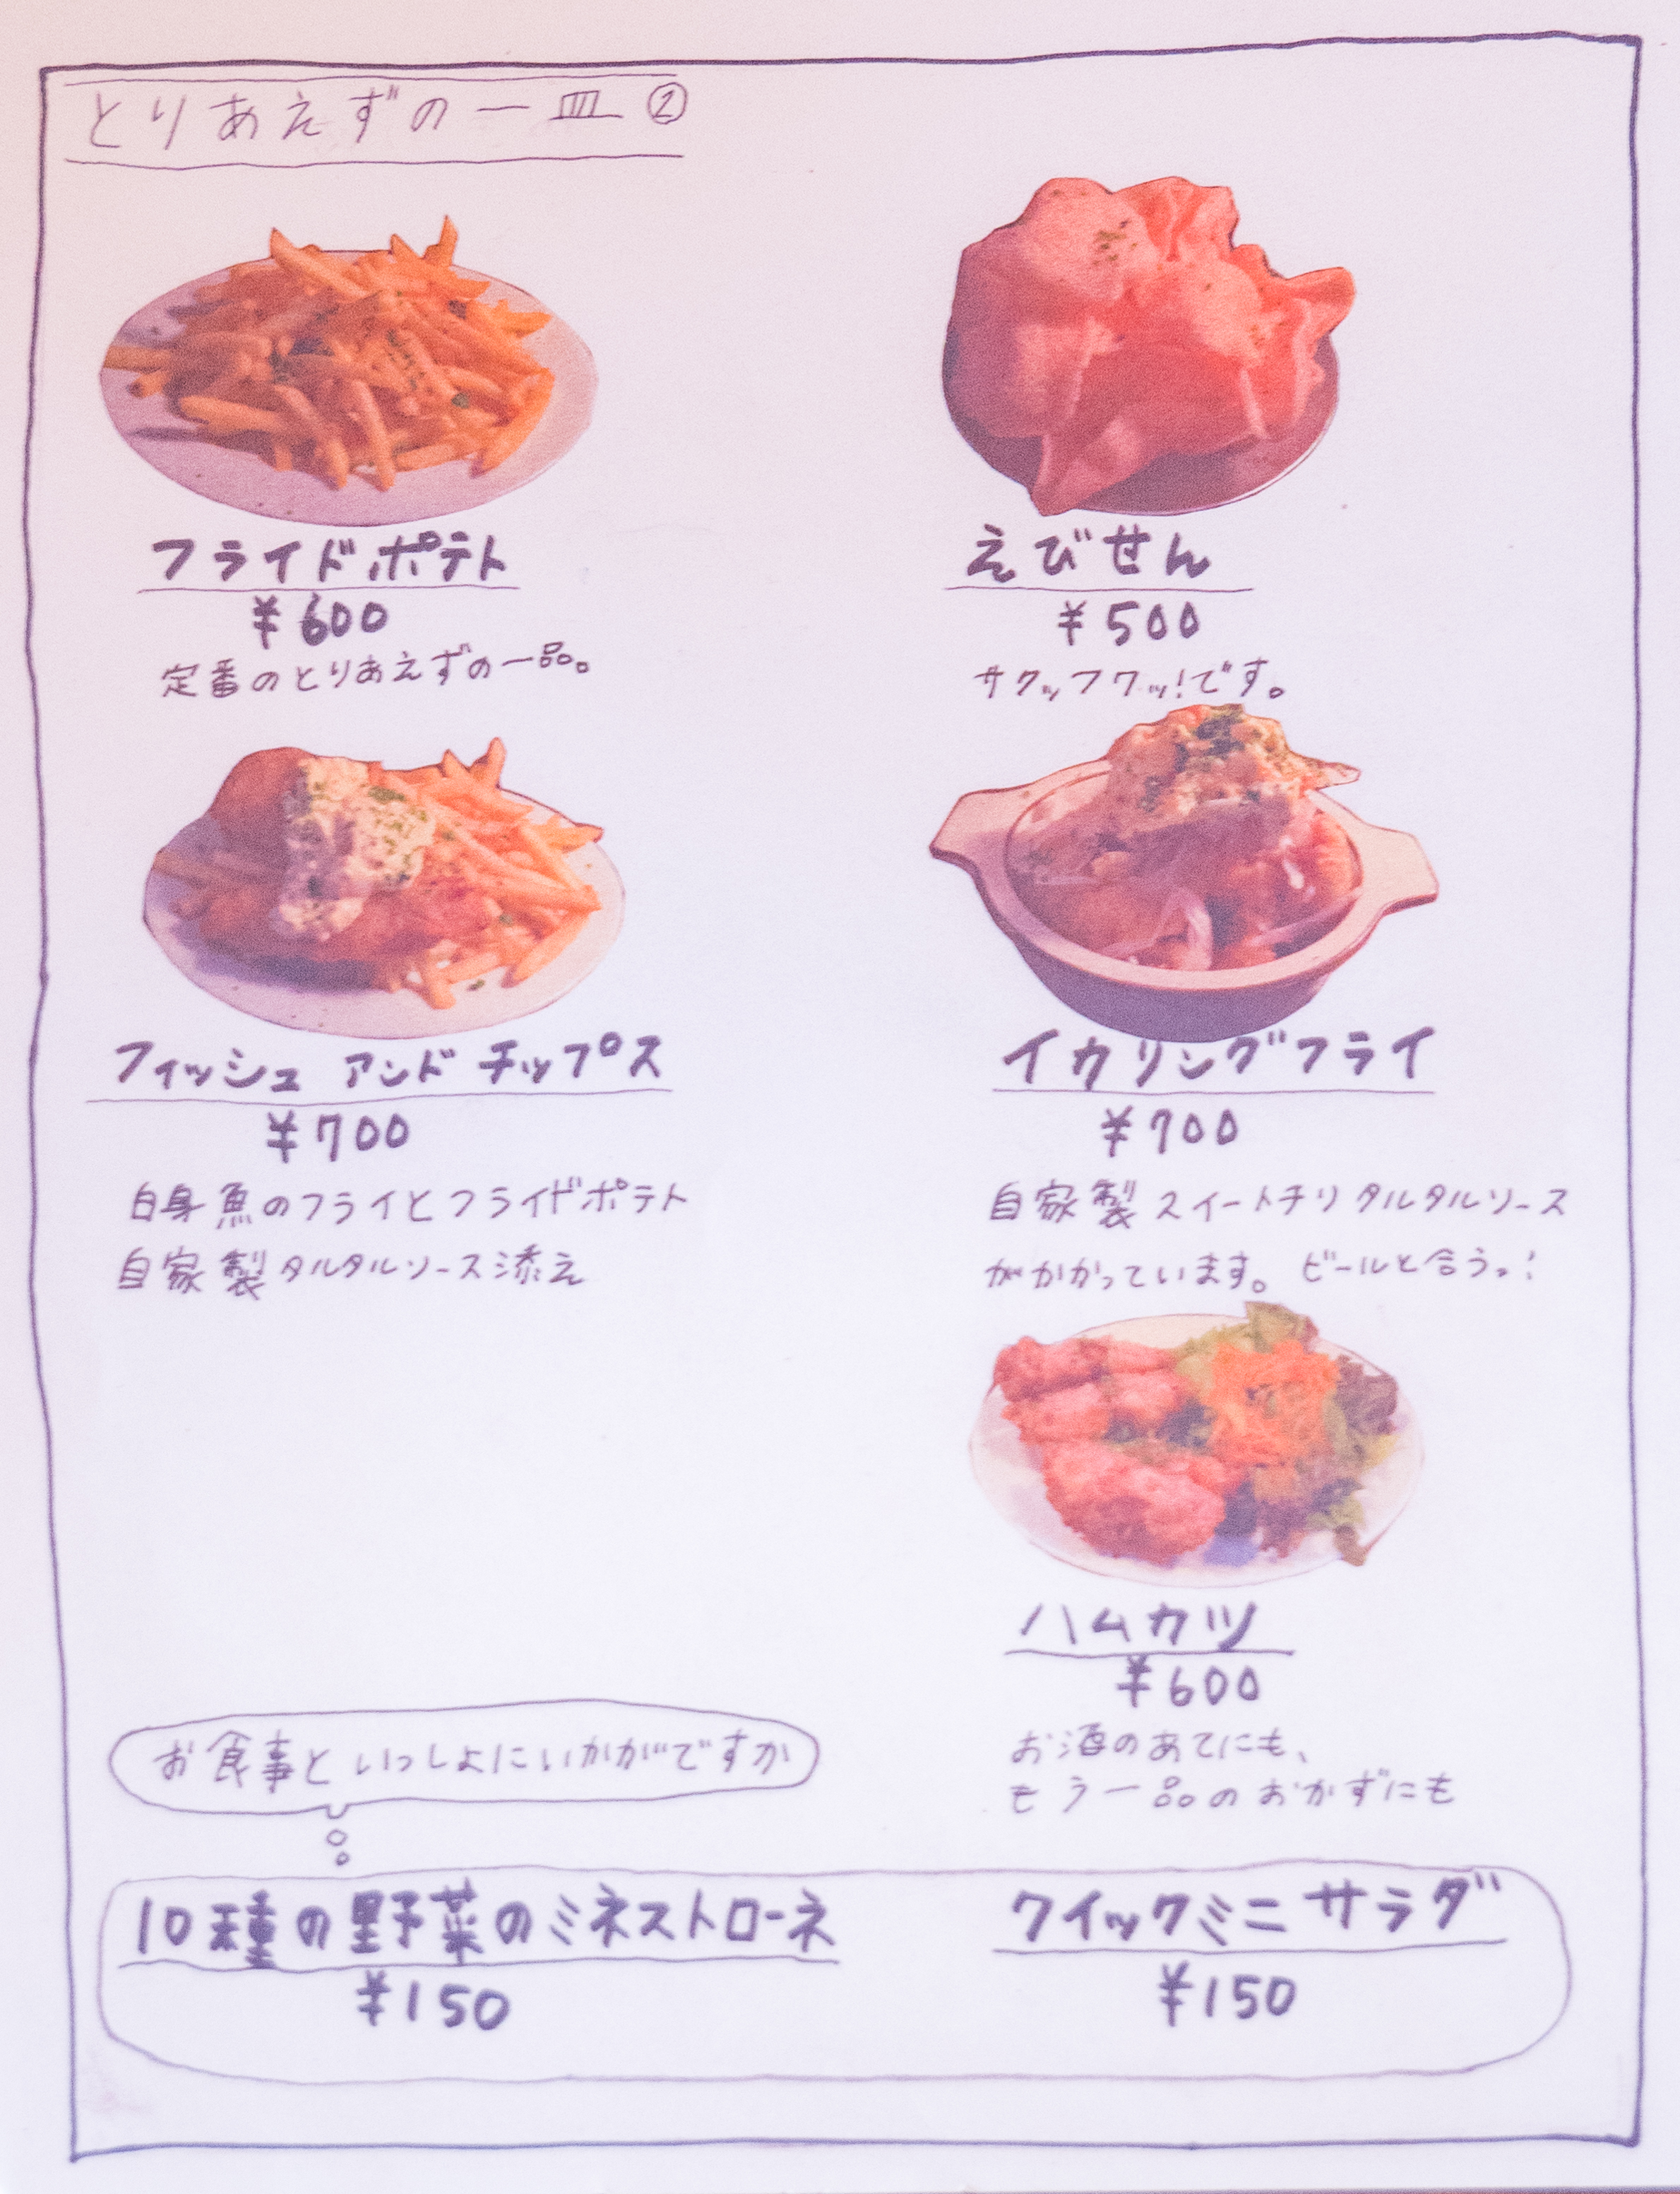 とりあえずの一皿②
フライドポテト
¥600
定番のとりあえずの一品。
えびせん
¥500
サクッフワッ!です。
フィッシュ アンド チップス
¥700
白身魚のフライとフライドポテト
自家製タルタルソース添え
イカリングフライ
¥700
自家製スイートチリタルタルソース
がかかっています。ビールと合うっ!
ハムカツ
¥600
お酒のあてにも、
もう一品のおかずにも
お食事といっしょにいかがですか
10種の野菜のミネストローネ
¥150
クイックミニサラダ
¥150